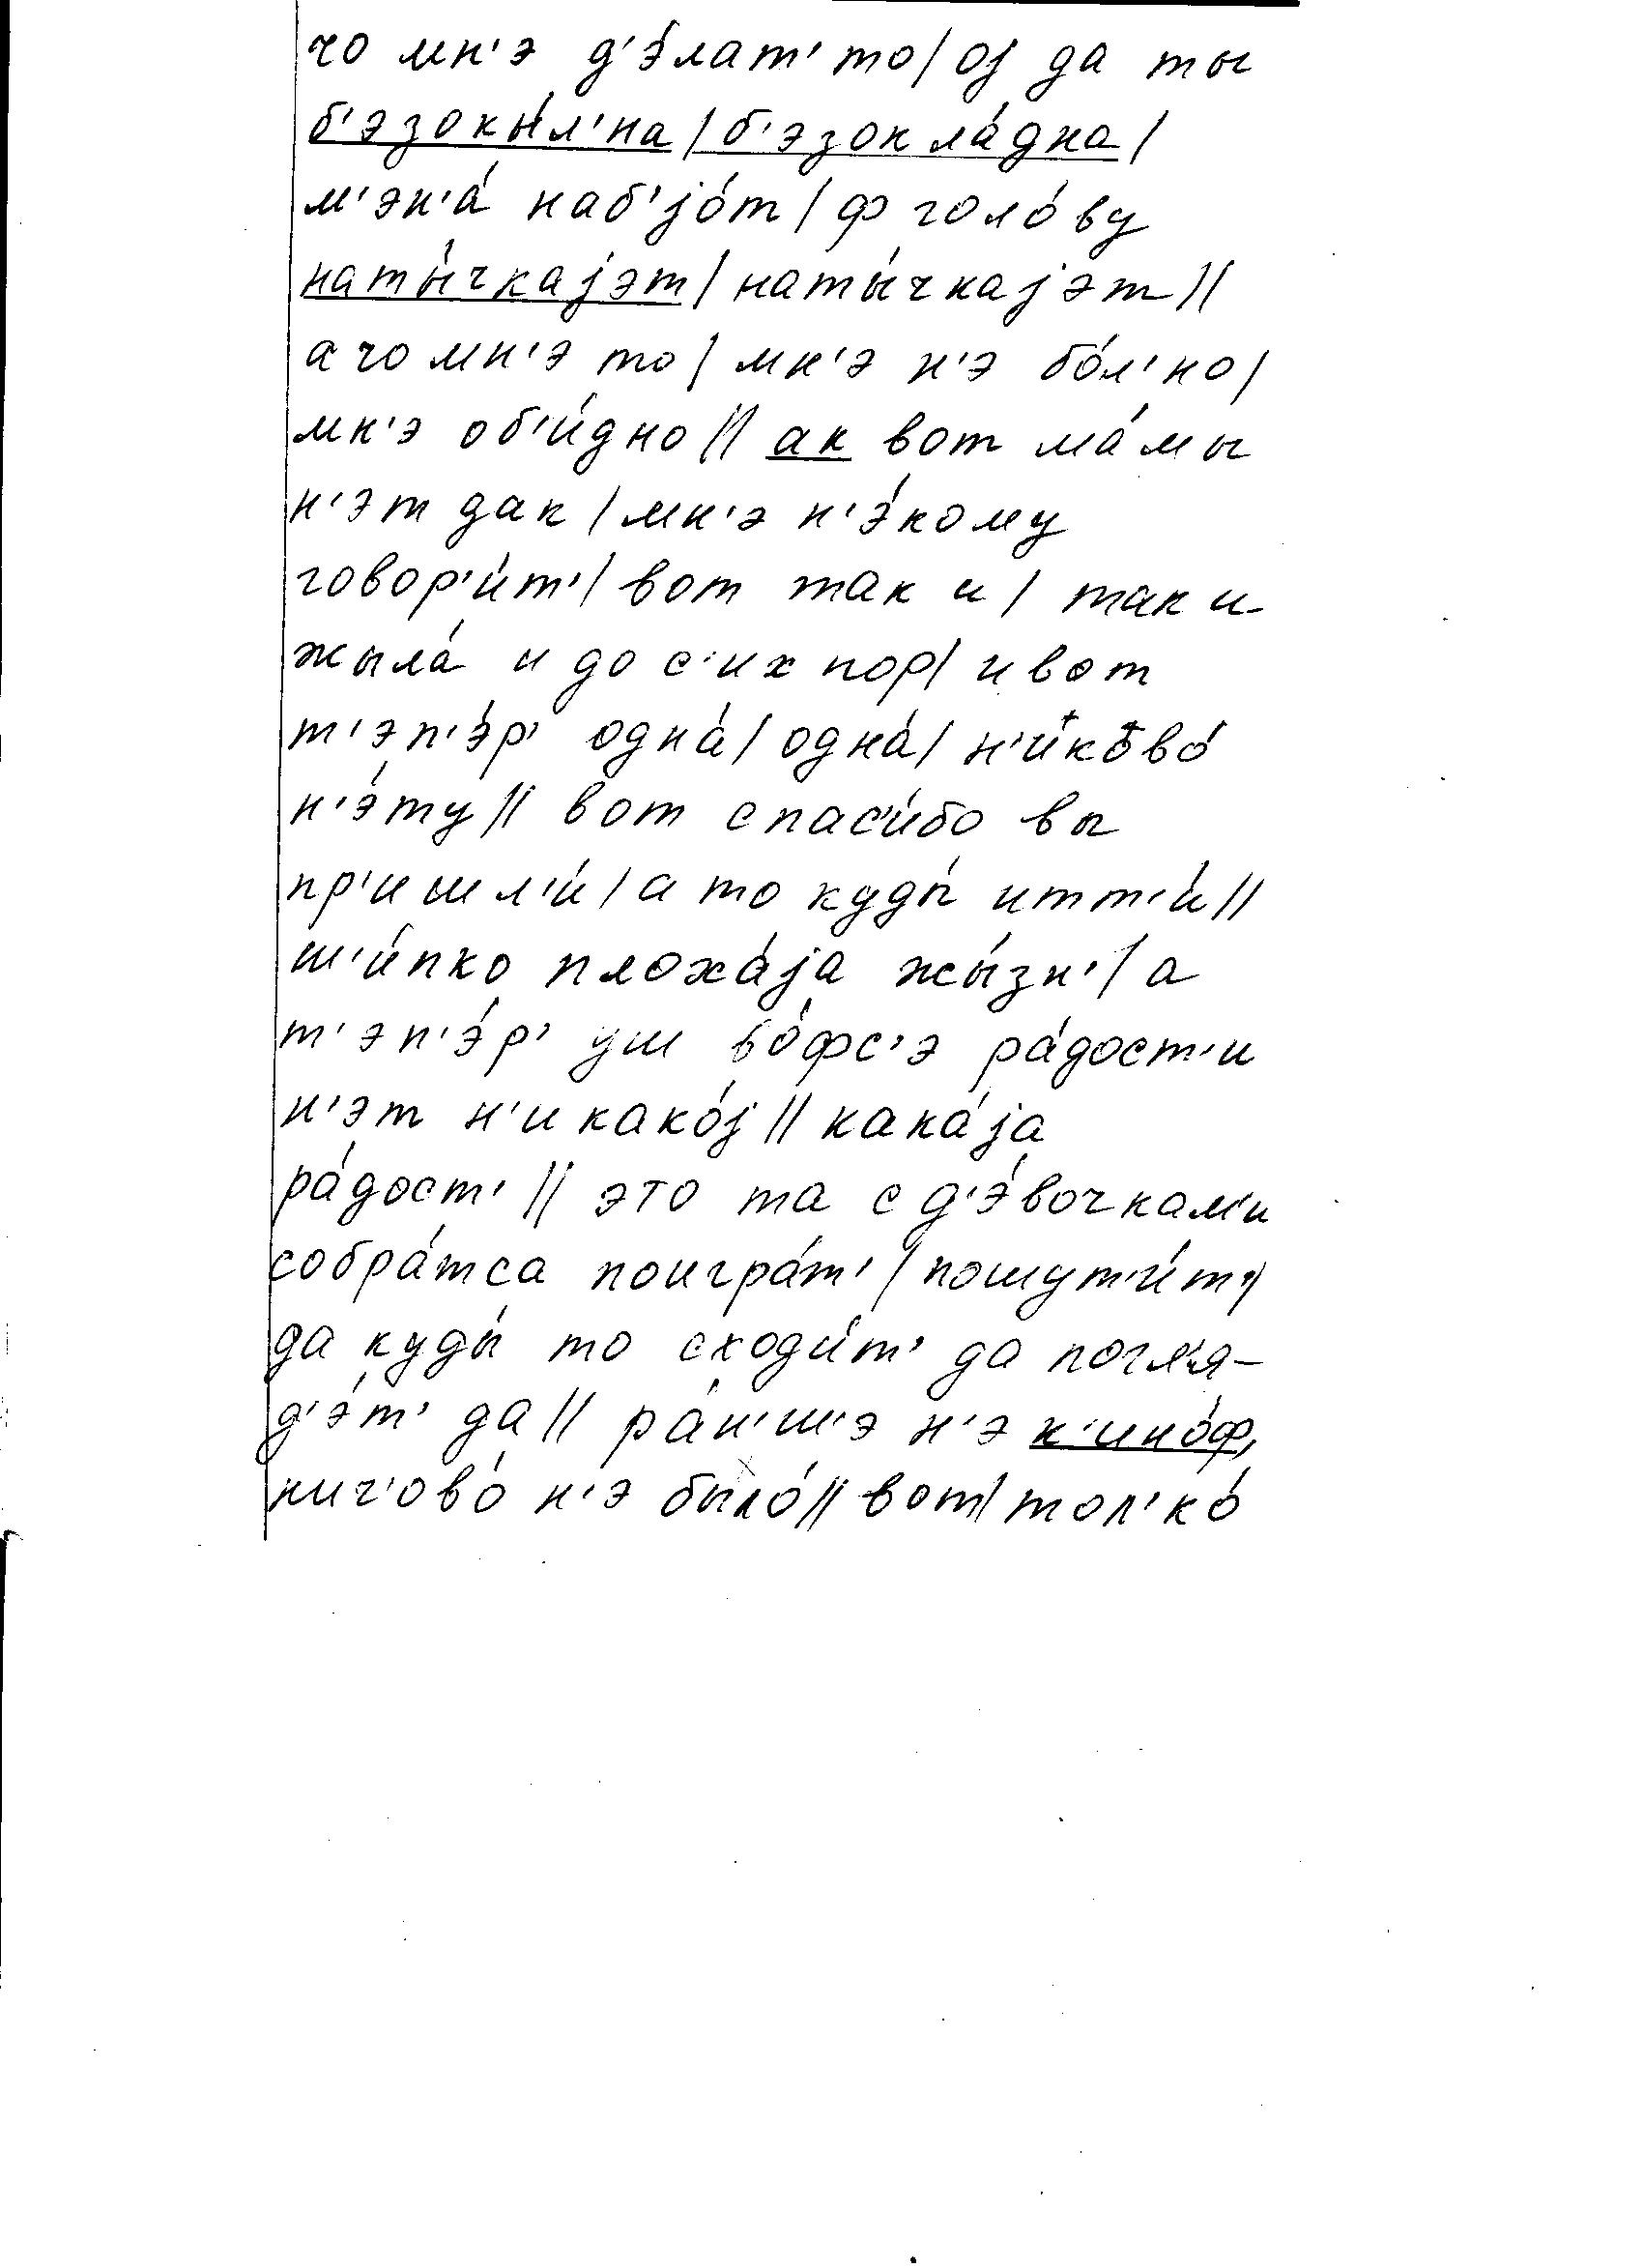 чо мн'э д'э́лат' то / оj да ты
б'эзокы́л'на / б'эзокла́дна /
м'эн'а́ наб'jо́т / ф голо́ву
наты́чкаjэт / наты́чкаjэт //
а чо мн'э то / мн'э н'э бо́л'но /
мн'э об'и́дно // ак вот ма́мы
н'эт дак / мн'э н'э́кому
говор'и́т' / вот так и / так и
жыла́ и до с'их пор / и вот
т'эп'э́р' одна́ / одна́ / н'и́ково́
н'э́ту // вот спас'и́бо вы
пр'ишл'и́ / а то куды́ итт'и́ //
ш'и́пко плоха́jа жы́зн' / а
т'эп'э́р' уш во́фс'э ра́дост'и
н'эт н'икако́j // кака́jа
ра́дост' // это та с д'э́вочкам'и
собра́тса поигра́т' / пошут'и́т' /
да куды́ то сходи́т' да погл'я-
д'э́т' да // ра́н'ш'э н'э к'ино́ф,
нич'ово́ н'э было́ // вот / тол'ко́